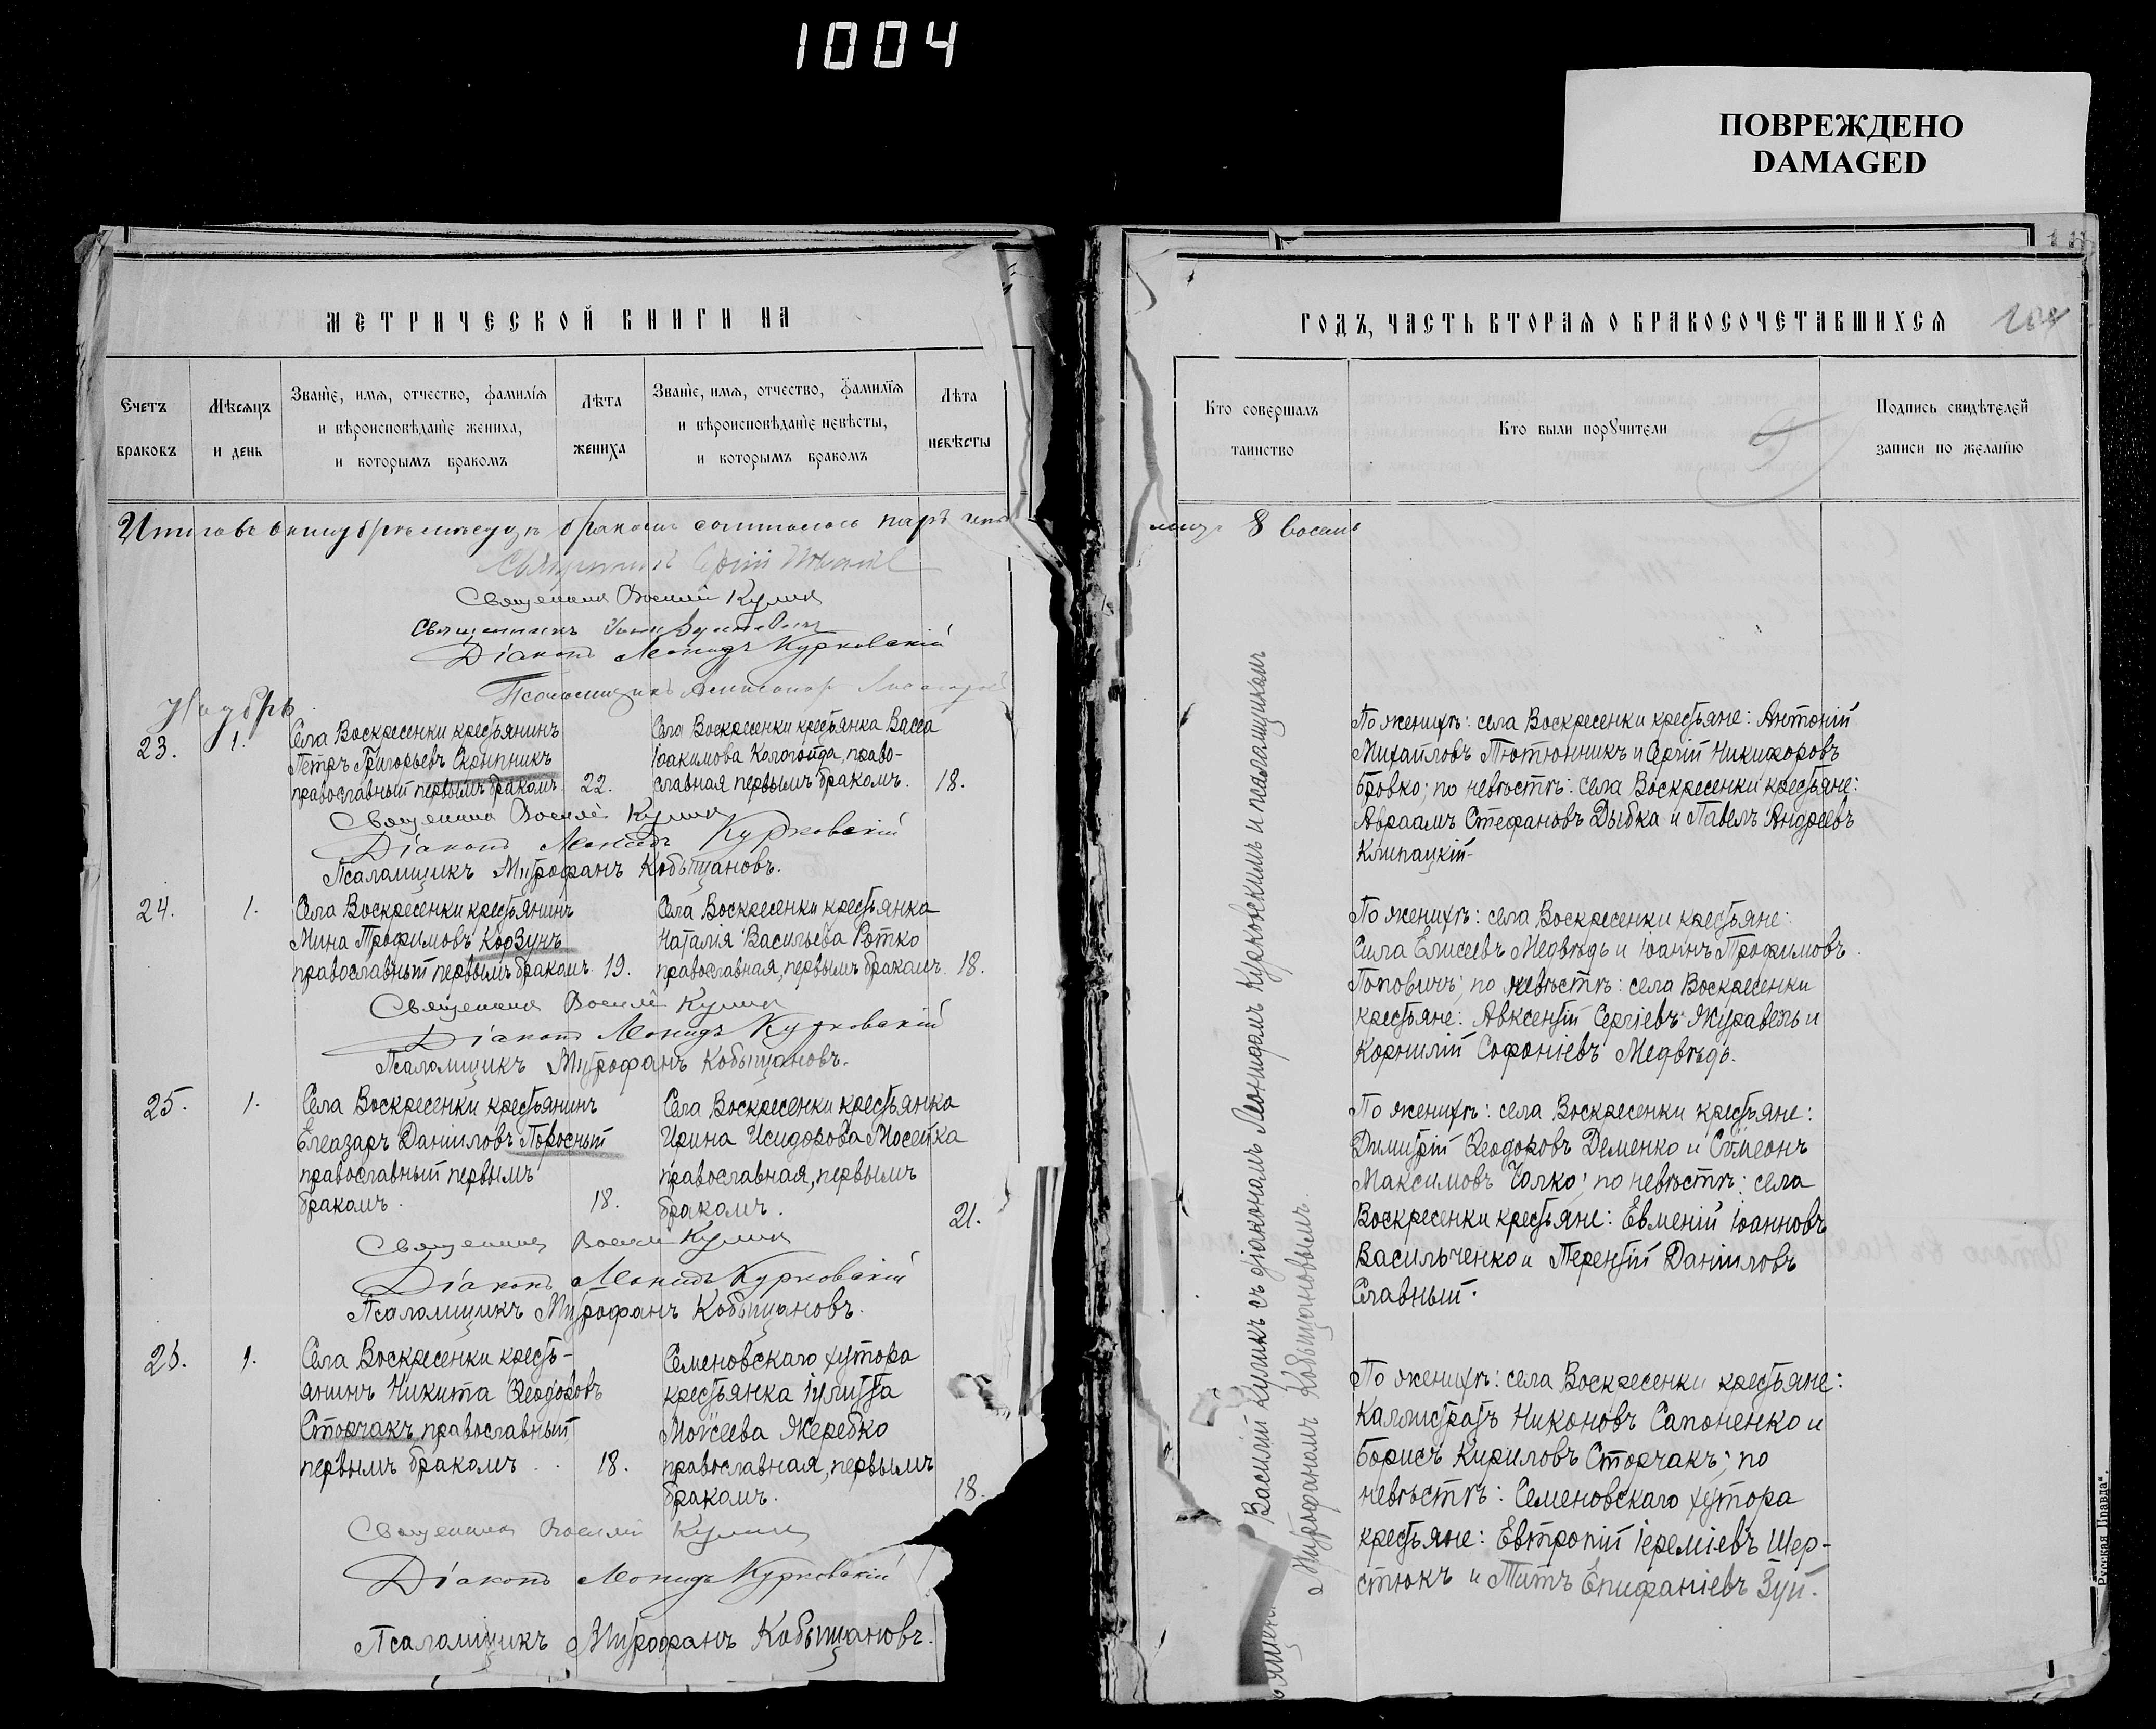 1004
ПОВРЕЖДЕНО
DAMAGED
МЕТРИЧЕСКОЙ КНИГИ НА
Счетъ браковъ
Мѣсяцъ и день
Званіе, имя, отчество, фамилія
и вѣроисповѣданіе жениха,
и которымъ бракомъ
Лѣта жениха
Званіе, имя, отчество, фамилія
и вѣроисповѣданіе невѣсты,
и которымъ бракомъ
Лѣта невѣсты
Священникъ Василій Куликъ
Священникъ
Діаконъ Леонидъ Курковскій
Псаломщикъ
Ноябрь
23.
1.
Села Воскресенки крестьянинъ
Петръ Григорьевъ Скрипникъ
православный первымъ бракомъ
22.
Села Воскресенки крестьянка Васса
Іоакимова Кологойда, право-
славная первымъ бракомъ.
18.
Священникъ Василій Куликъ
Діаконъ Леонидъ Курковскій
Псаломщикъ Митрофанъ Кобыщановъ.
24.
1.
Села Воскресенки крестьянинъ
Мина Трофимовъ Корзунъ
православный первымъ бракомъ.
19.
Села Воскресенки крестьянка
Наталія Васильева Ротко
православная, первымъ бракомъ.
18.
Священникъ Василій Куликъ
Діаконъ Леонидъ Курковскій
Псаломщикъ Митрофанъ Кобыщановъ.
25.
1.
Села Воскресенки крестьянинъ
Елеазаръ Даніиловъ Поросный
православный первымъ
бракомъ.
18.
Села Воскресенки крестьянка
Ирина Исидорова Мосейка
православная, первымъ
бракомъ.
21.
Священникъ Василій Куликъ
Діаконъ Леонидъ Курковскій
Псаломщикъ Митрофанъ Кобыщановъ.
26.
1.
Села Воскресенки кресть-
янинъ Никита Ѳеодоровъ
Сторчакъ, православный,
первымъ бракомъ
18.
Семеновскаго хутора
крестьянка Іулитта
Моѵсеева Жеребко
православная, первымъ
бракомъ.
18.
Священникъ Василій Куликъ
Діаконъ Леонидъ Курковскій
Псаломщикъ Митрофанъ Кобыщановъ.
ГОДЪ, ЧАСТЬ ВТОРАЯ О БРАКОСОЧЕТАВШИХСЯ
Кто совершалъ таинство
Кто были поручители
Подпись свидѣтелей
записи по желанію
8 восемь
Василій Куликъ съ діакономъ Леонидомъ Курковскимъ и псаломщикомъ
Митрофаномъ Кобыщановымъ.
По женихѣ: села Воскресенки крестьяне: Антоній
Михайловъ Тютюнникъ и Сергій Никифоровъ
Бровко; по невѣстѣ: села Воскресенки крестьяне:
Авраамъ Стефановъ Дыбка и Павелъ Андреевъ
Клипацкій.
По женихѣ: села Воскресенки крестьяне:
Сила Елисеевъ Медвѣдь и Іоаннъ Трофимовъ
Поповичъ; по невѣстѣ: села Воскресенки
крестьяне: Авксентій Сергіевъ Журавель и
Корнилій Софоніевъ Медвѣдь.
По женихѣ: села Воскресенки крестьяне:
Димитрій Ѳеодоровъ Деменко и Сѵмеонъ
Максимовъ Чалко; по невѣстѣ: села
Воскресенки крестьяне: Евменій Іоанновъ
Васильченко и Терентій Даніиловъ
Славный.
По женихѣ: села Воскресенки крестьяне:
Каллистратъ Никоновъ Сапоненко и
Борисъ Кириловъ Сторчакъ; по
невѣстѣ: Семеновскаго хутора
крестьяне: Евтропій Іереміевъ Шер-
стюкъ и Титъ Епифаніевъ Зуй.
Русская Правда".